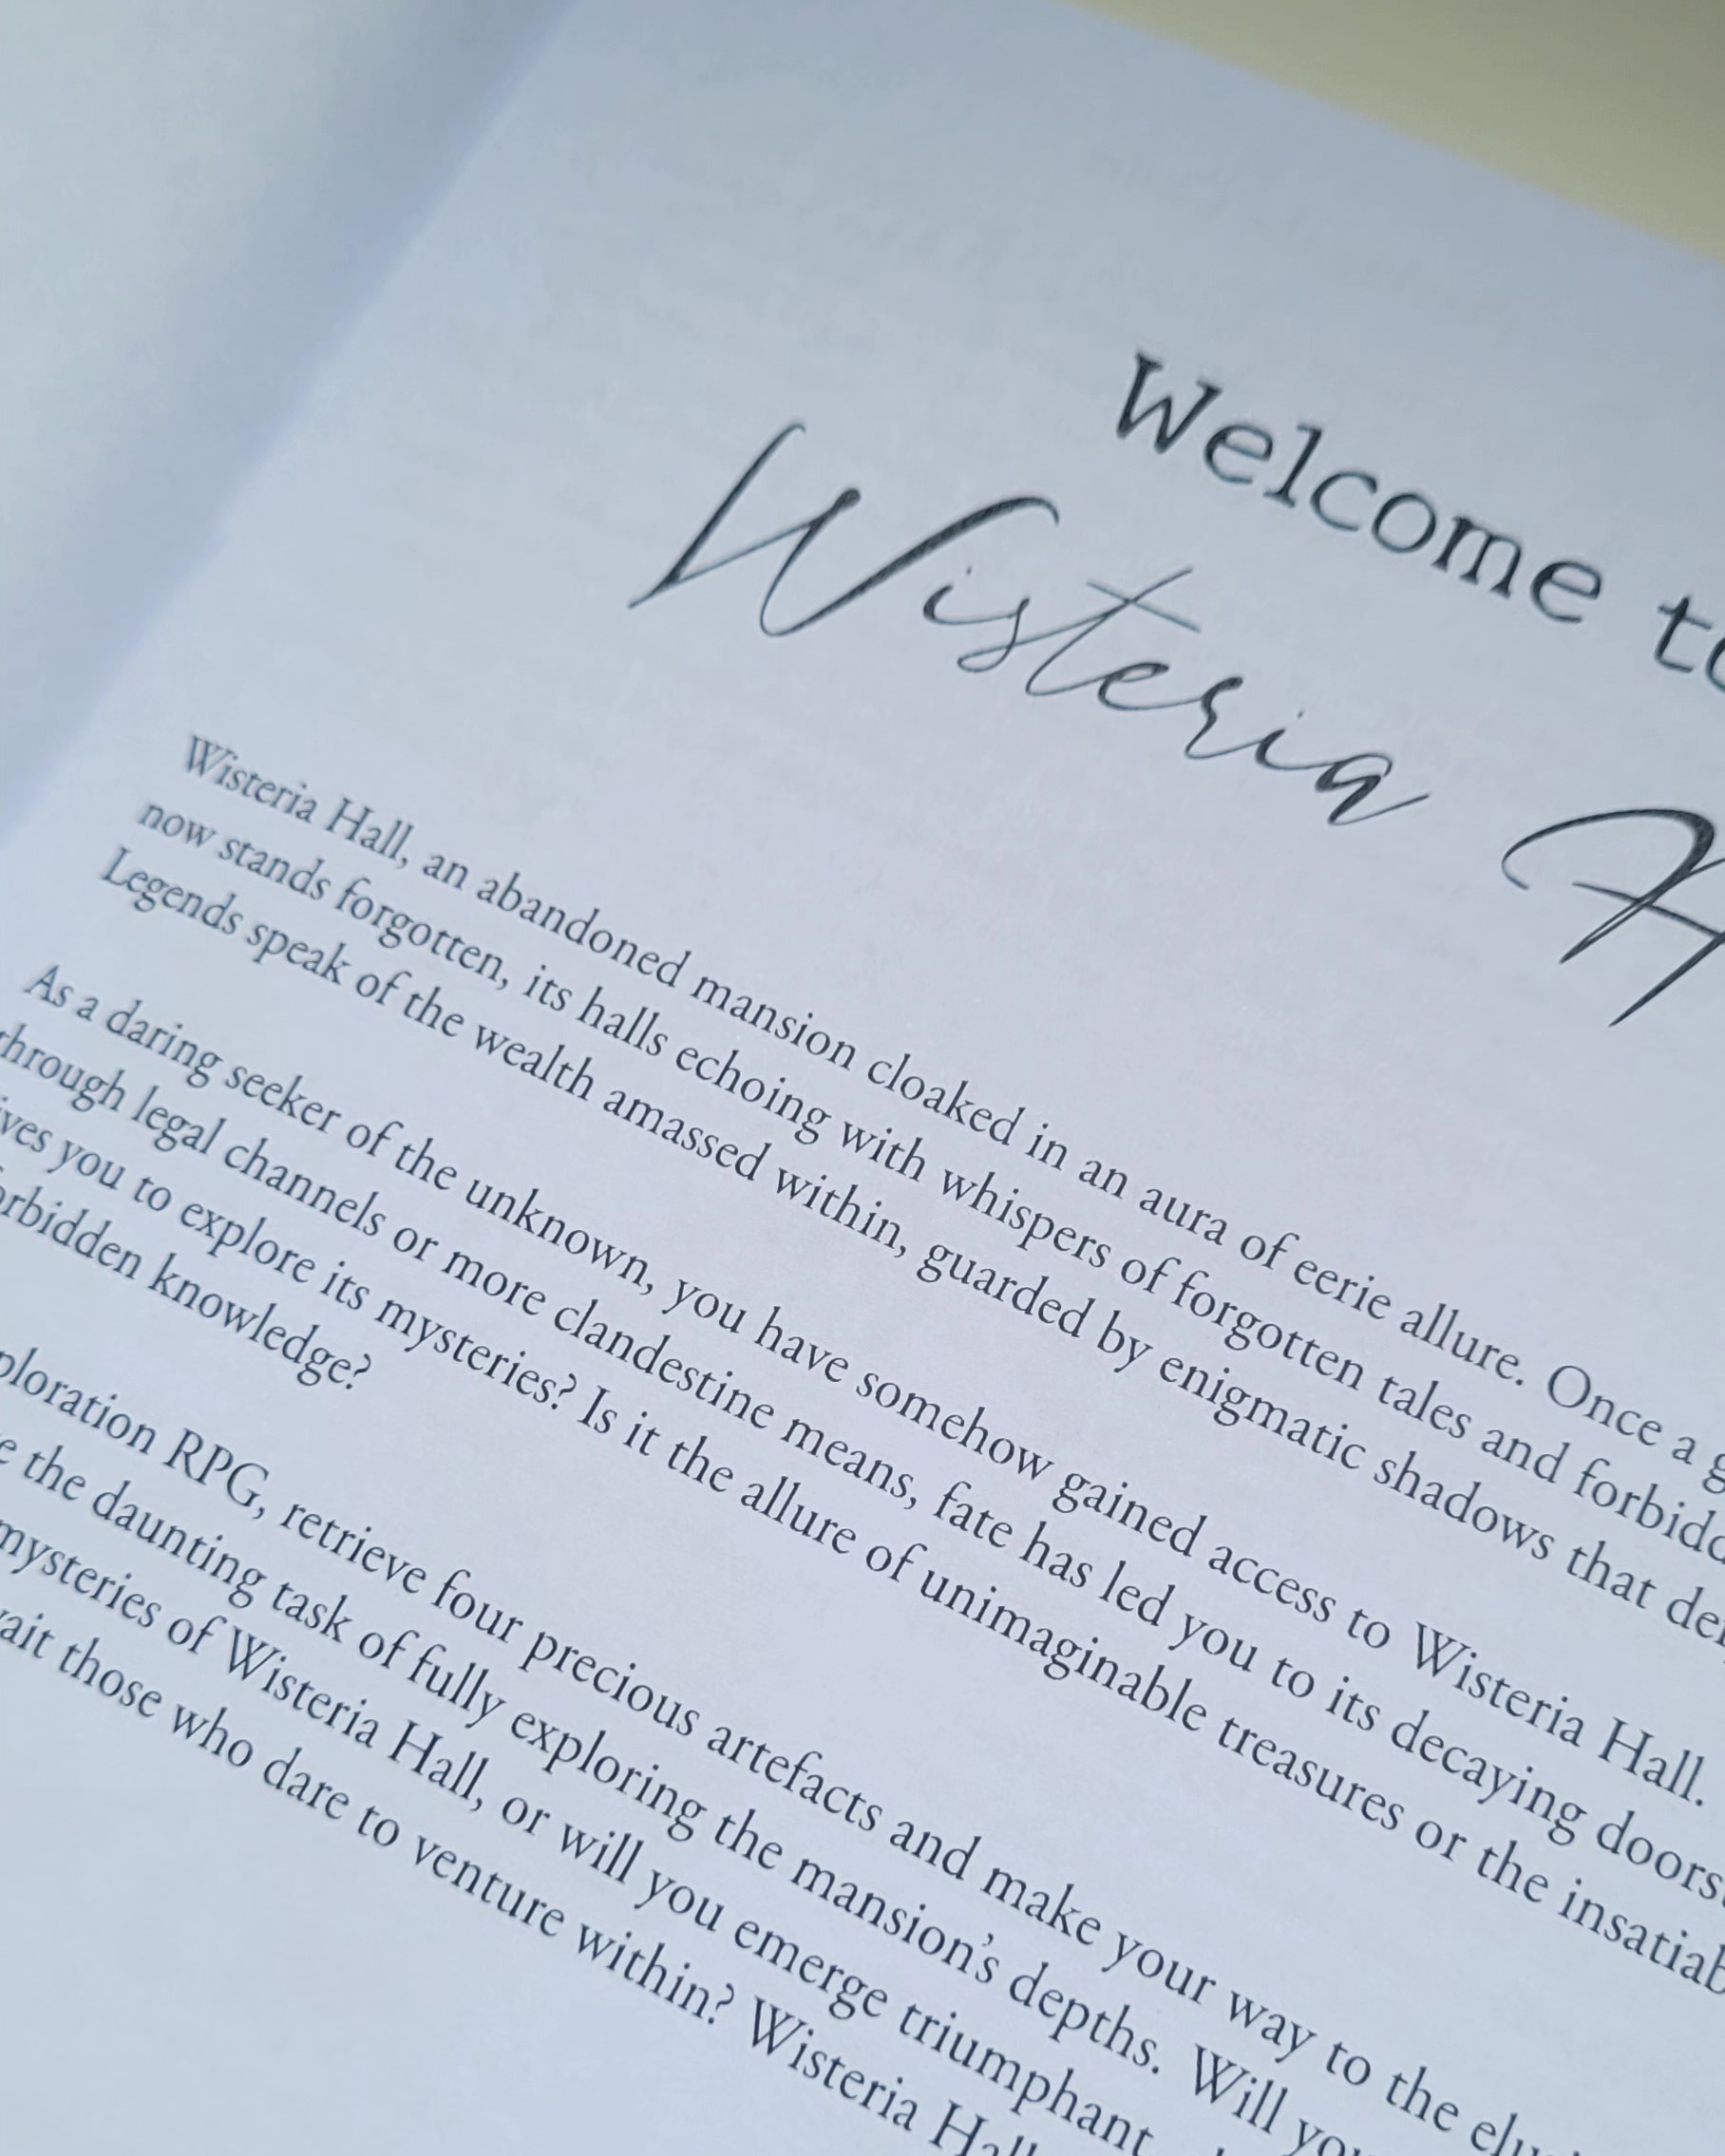 Welcome to
Wisteria H
Wisteria Hall, an abandoned mansion cloaked in an aura of eerie allure. Once a g
now stands forgotten, its halls echoing with whispers of forgotten tales and forbidd
Legends speak of the wealth amassed within, guarded by enigmatic shadows that de
As a daring seeker of the unknown, you have somehow gained access to Wisteria Hall.
through legal channels or more clandestine means, fate has led you to its decaying doors
ives you to explore its mysteries? Is it the allure of unimaginable treasures or the insatiab
orbidden knowledge?
ploration RPG, retrieve four precious artefacts and make your way to the elu
e the daunting task of fully exploring the mansion's depths. Will you
mysteries of Wisteria Hall, or will you emerge triumphant
ait those who dare to venture within? Wisteria Hall